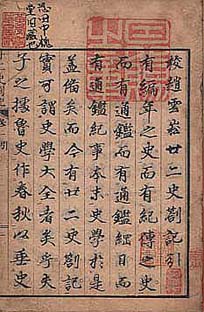 校趙雲崧廿二史劄記引
有編年之史而有紀傳之史
而有通鑑而有通鑑綱目而
有通鑑紀事本末史學於是
蓋備矣而今有廿二史劄記
實可謂史學大全者矣夫
子之據魯史作春秋以垂史